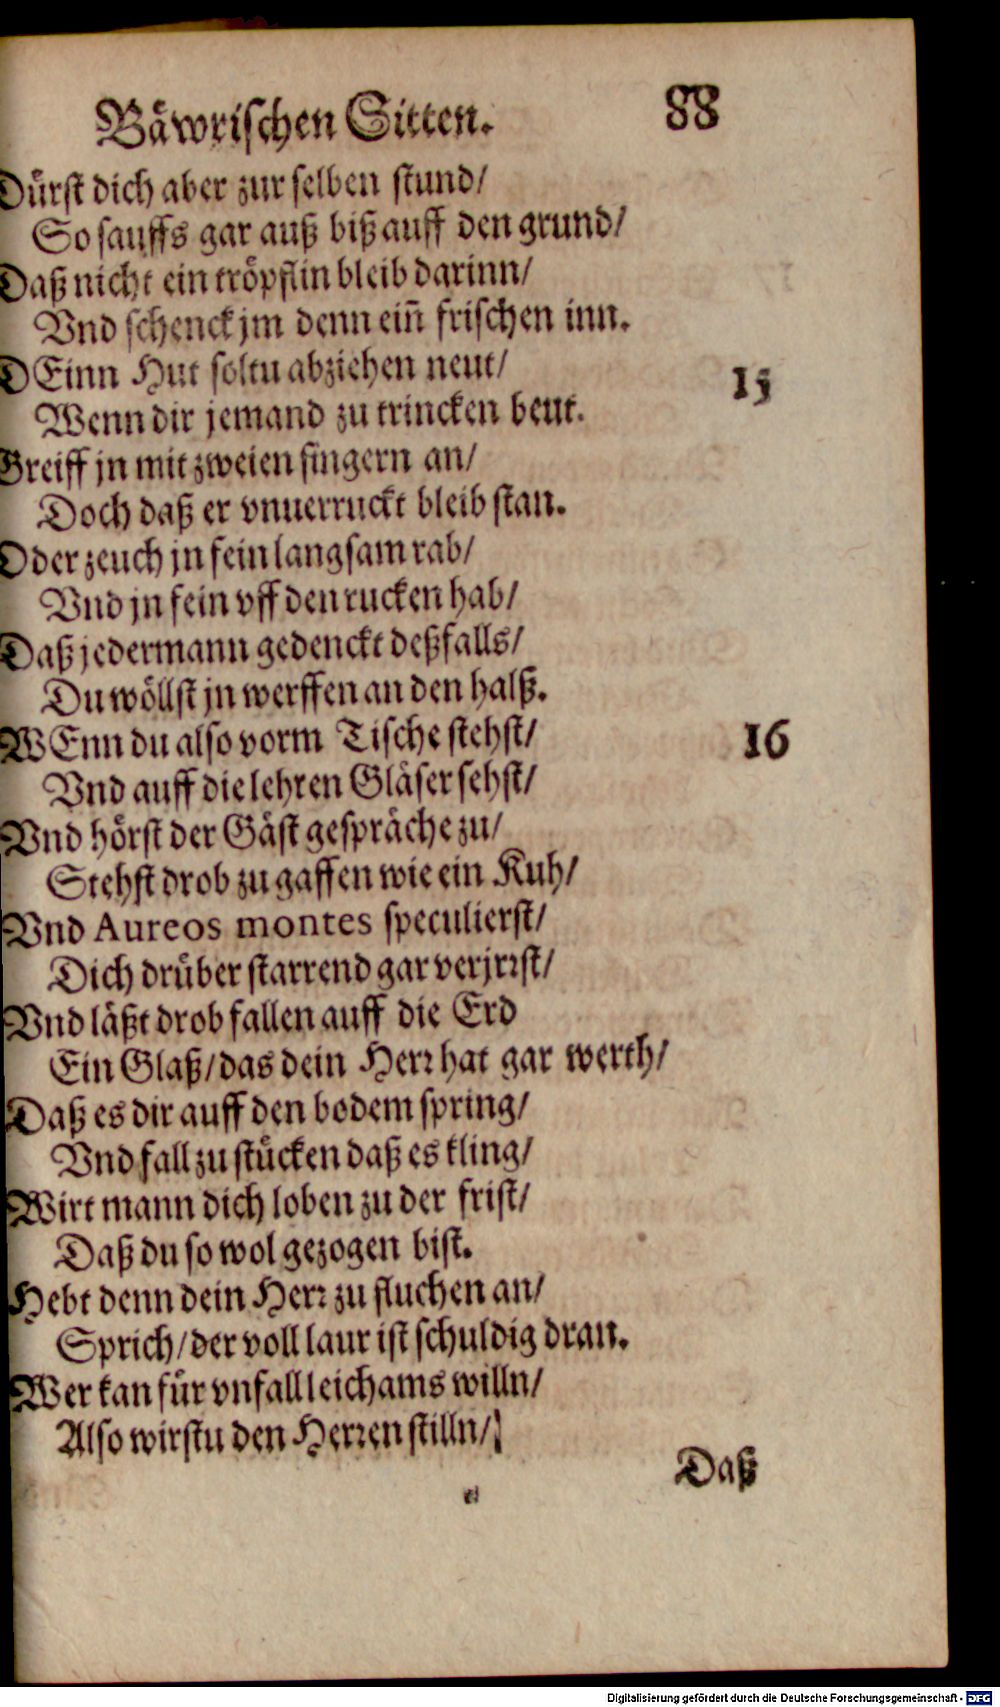 Bäwrischen Sitten. 88
Dürst dich aber zur selben stund/
So sauffs gar auß biß auff den grund/
Daß nicht ein tröpflin bleib darinn/
Vnd schenck jm denn eiñ frischen inn.
DEinn Hut soltu abziehen neut/ 15
Wenn dir jemand zu trincken beut.
Greiff jn mit zweien fingern an/
Doch daß er vnuerruckt bleib stan.
Oder zeuch jn fein langsam rab/
Vnd jn fein vff den rucken hab/
Daß jedermann gedenckt deßfalls/
Du wöllst jn werffen an den halß.
WEnn du also vorm Tische stehst/ 16
Vnd auff die lehren Gläser sehst/
Vnd hörst der Gäst gespräche zu/
Stehst drob zu gaffen wie ein Kuh/
Vnd Aureos montes speculierst/
Dich drüber starrend gar verjrrst/
Vnd läßt drob fallen auff die Erd
Ein Glaß/ das dein Herr hat gar werth/
Daß es dir auff den bodem spring/
Vnd fall zu stücken daß es kling/
Wirt mann dich loben zu der frist/
Daß du so wol gezogen bist.
Hebt denn dein Herr zu fluchen an/
Sprich/ der voll laur ist schuldig dran.
Wer kan für vnfall leichams willn/
Also wirstu den Herren stilln/
Daß
Digitalisierung gefördert durch die Deutsche Forschungsgemeinschaft - DFG